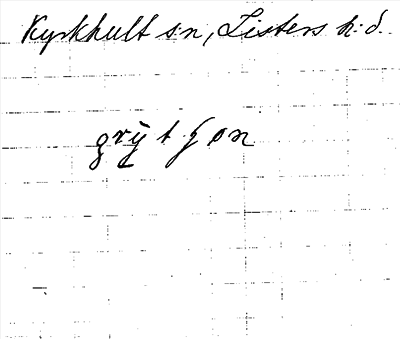 Kyrkhult sn, Listers h:d.
grỳt ʃơn